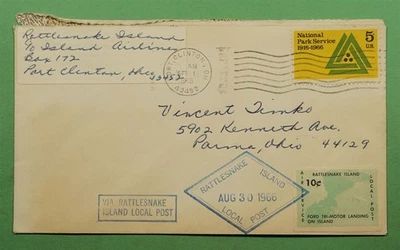 Rattlesnake Island
% Island Airlines
Box 172
Port Clinton, Ohio
43452
CLINTON, OH
AM
43452
National
Park Service
1916-1966
5
U.S.
Vincent Timko
5902 Kenneth Ave.
Parma, Ohio 44129
VIA RATTLESNAKE
ISLAND LOCAL POST
RATTLESNAKE ISLAND
AUG 30 1966
LOCAL POST
RATTLESNAKE ISLAND
10¢
AIR SERVICE
LOCAL POST
FORD TRI-MOTOR LANDING
ON ISLAND